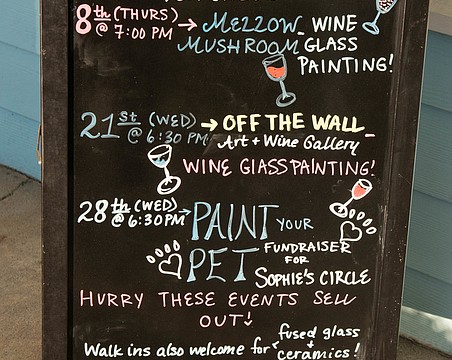 8th (THURS) → MELLOW WINE
@ 7:00 PM MUSHROOM GLASS
PAINTING!
21st (WED) → OFF THE WALL
@ 6:30 PM Art + Wine Gallery
WINE GLASS PAINTING!
28th (WED) → PAINT YOUR
@ 6:30PM
PET FUNDRAISER
FOR
SOPHIE'S CIRCLE
HURRY THESE EVENTS SELL
OUT!
Walk ins also welcome for fused glass
+ ceramics!